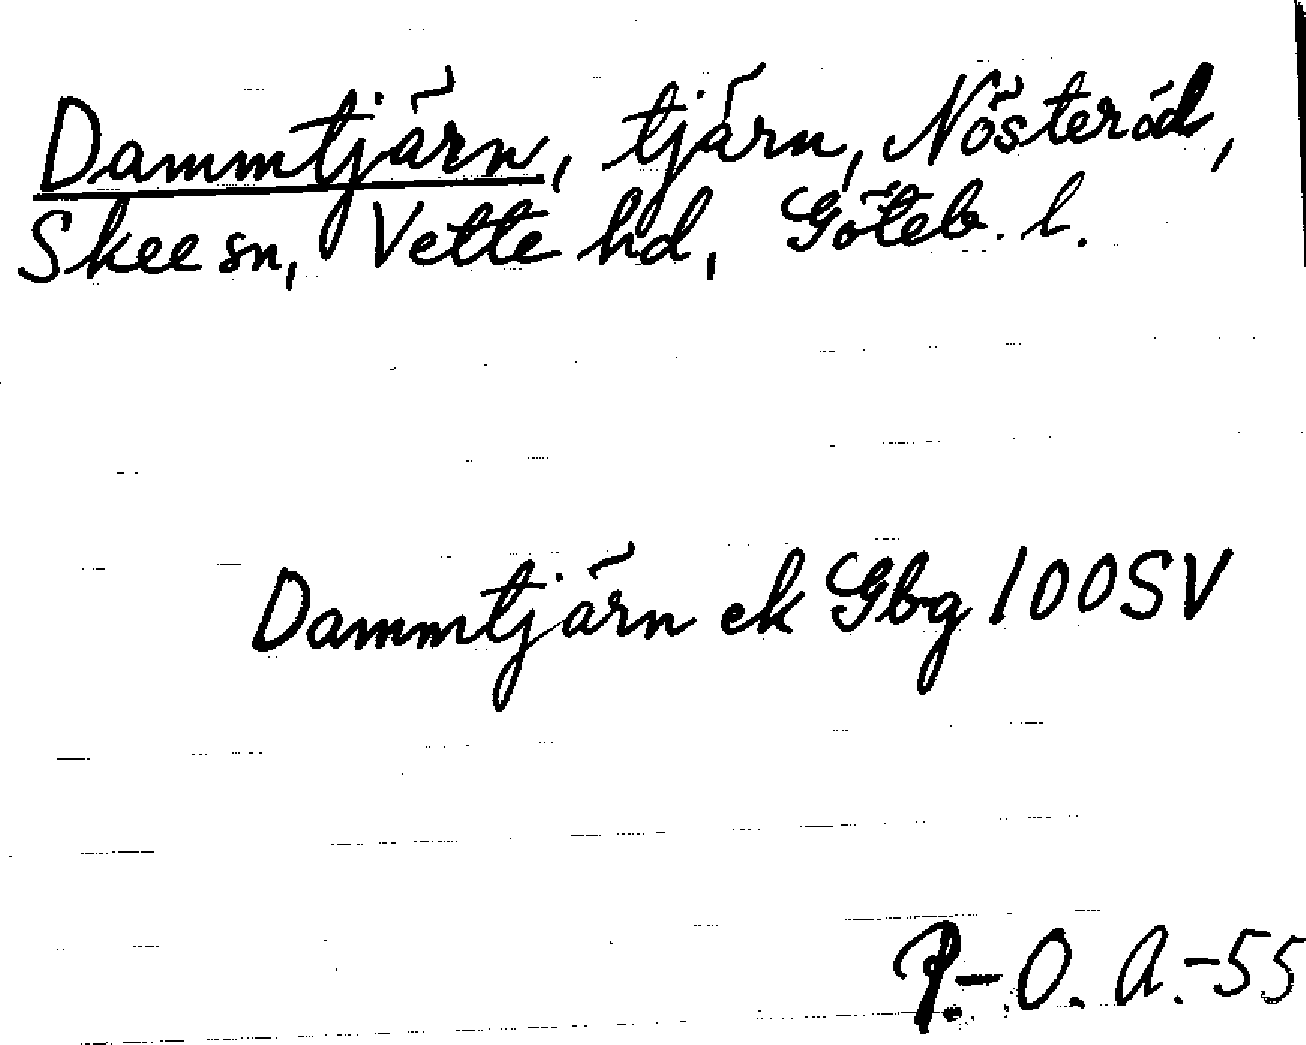 Dammtjärn, tjärn, Nösteröd,
Skee sn, Vette hd, Göteb. l.
Dammtjärn ek Gbg 100SV
P.-O. A.-55